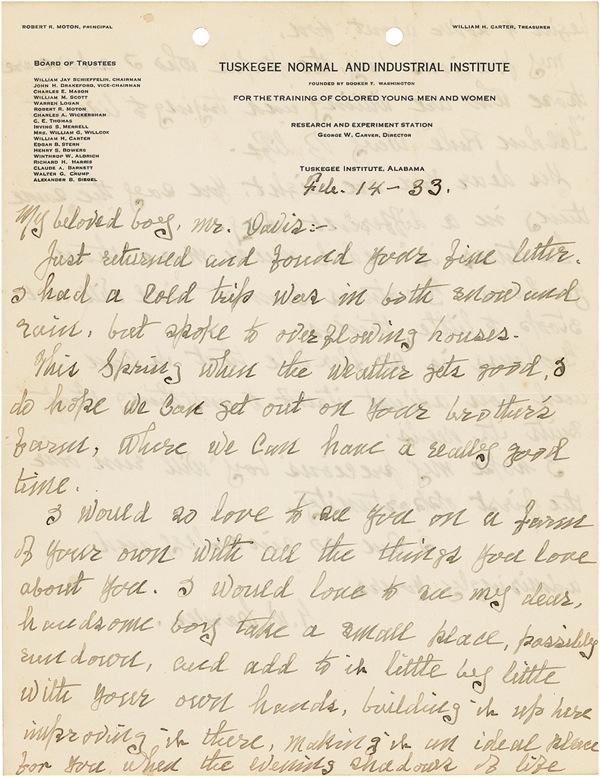 ROBERT R. MOTON, PRINCIPAL
WILLIAM H. CARTER, TREASURER
BOARD OF TRUSTEES
WILLIAM JAY SCHIEFFELIN, CHAIRMAN
JOHN H. DRAKEFORD, VICE-CHAIRMAN
CHARLES E. MASON
WILLIAM M. SCOTT
WARREN LOGAN
ROBERT R. MOTON
CHARLES A. WICKERSHAM
G. E. THOMAS
IRVING S. MERRELL
MRS. WILLIAM G. WILLCOX
WILLIAM H. CARTER
EDGAR B. STERN
HENRY S. BOWERS
WINTHROP W. ALDRICH
RICHARD H. HARRIS
CLAUDE A. BARNETT
WALTER G. CRUMP
ALEXANDER B. SIEGEL
TUSKEGEE NORMAL AND INDUSTRIAL INSTITUTE
FOUNDED BY BOOKER T. WASHINGTON
FOR THE TRAINING OF COLORED YOUNG MEN AND WOMEN
RESEARCH AND EXPERIMENT STATION
GEORGE W. CARVER, DIRECTOR
TUSKEGEE INSTITUTE, ALABAMA
Feb. 14-33.
My beloved boy, Mr. Davis:-
Just returned and found your fine letter.
I had a cold trip was in both snow and
rain, but spoke to overflowing houses.
This Spring when the weather gets good, I
do hope we can get out on your brother's
farm, where we can have a really good
time.
I would so love to see you on a farm
of your own with all the things you love
about you. I would love to see my dear,
handsome boy take a small place, possibly
rundown, and add to it little by little
with your own hands, building it up here
improving it there, making it an ideal place
for you when the evening shadows of life